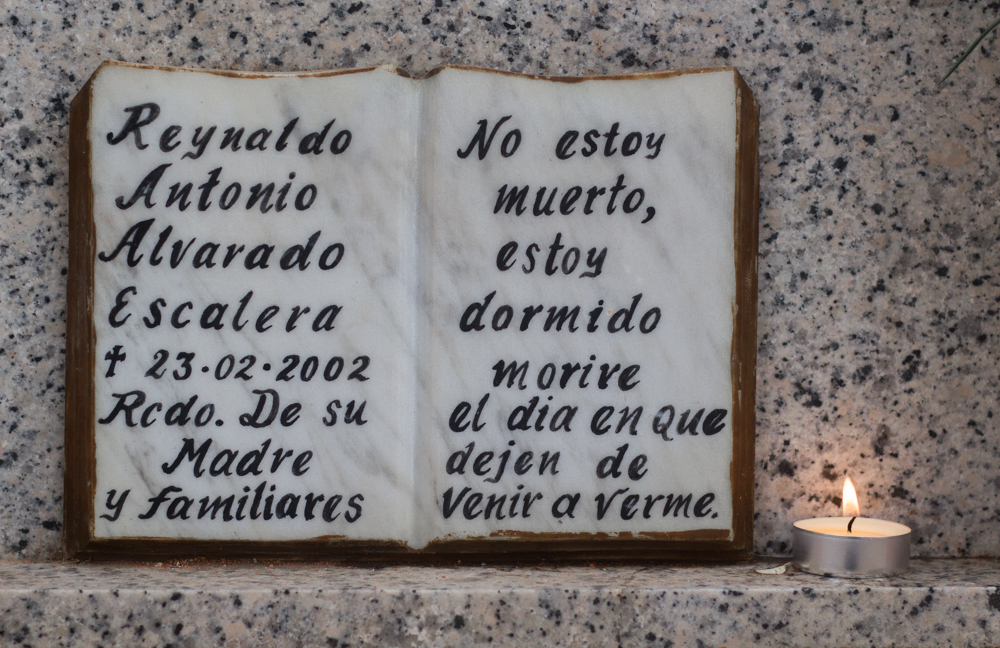 Reynaldo
Antonio
Alvarado
Escalera
✝ 23·02·2002
Rcdo. De su
Madre
y familiares
No estoy
muerto,
estoy
dormido
morire
el dia en que
dejen de
venir a verme.